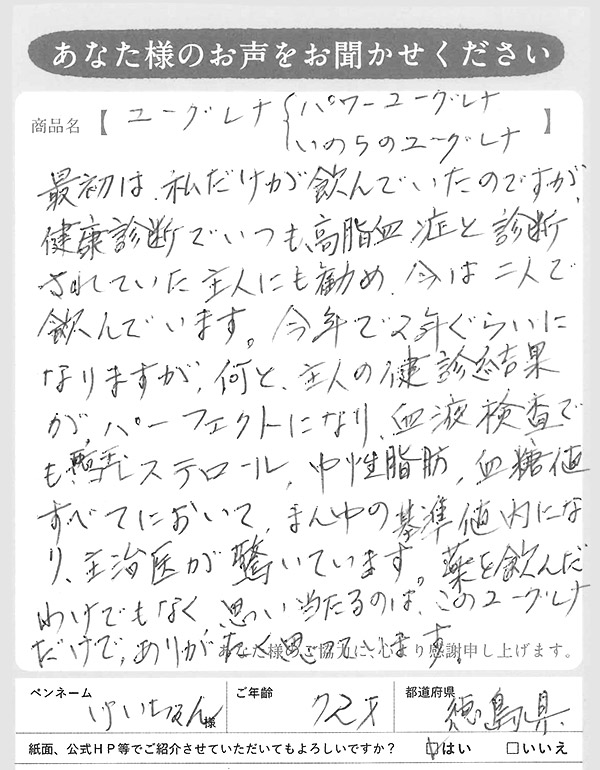 あなた様のお声をお聞かせください
商品名【 ユーグレナ { パワーユーグレナ
いのちのユーグレナ 】
最初は、私だけが飲んでいたのですが、
健康診断でいつも、高脂血症と診断
されていた主人にも勧め、今は二人で
飲んでいます。今年で2年ぐらいに
なりますが、何と、主人の健診結果
が、パーフェクトになり、血液検査で
も、レステロール、中性脂肪、血糖値
すべてにおいて、まん中の基準値内にな
り、主治医が驚いています。薬を飲んだ
わけでもなく思い当たるのは、このユーグレナ
だけで、ありがたく思っています。
あなた様のご協力に、心より感謝申し上げます。
ペンネーム けいちゃん 様 ご年齢 72才 都道府県 徳島県
紙面、公式HP等でご紹介させていただいてもよろしいですか？ ☑はい □いいえ